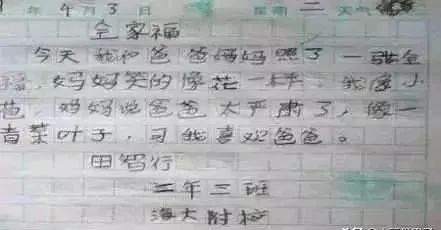 年 4月3日 星期 二 天气
全家福
今天我和爸爸妈妈照了一张全
福,妈妈笑的像花一样,我像小
妈妈说爸爸太严肃了,像一
青菜叶子,可我喜欢爸爸。
田智行
二年三班
海大附校